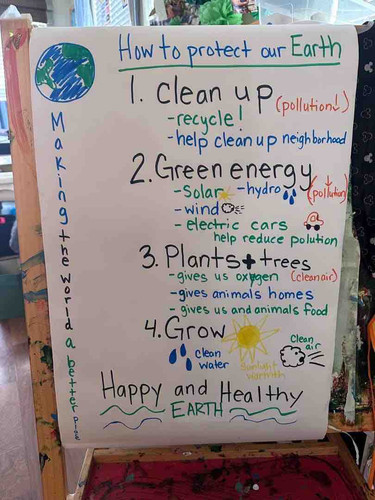 How to protect our Earth
1. Clean up (pollution↓)
- recycle!
- help clean up neighborhood
2. Green energy (↓pollution)
- Solar - hydro
- wind
- electric cars
help reduce polution
3. Plants + trees
- gives us oxygen (clean air)
- gives animals homes
- gives us and animals food
4. Grow
clean water
Sunlight
warmth
Clean air
Happy and Healthy
EARTH
Making the world a better